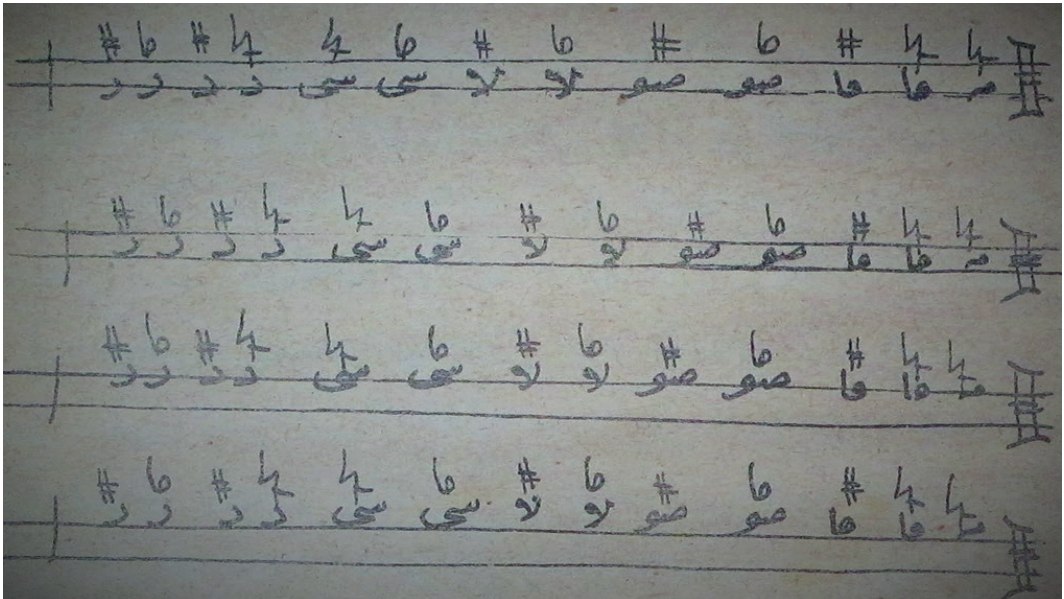 ♮ ♮ # ♭ # ♭ # ♭ ♮ ♮ # ♭ #
م فا فا صو صو لا لا سى سى د د ر ر
♮ ♮ # ♭ # ♭ # ♭ ♮ ♮ # ♭ #
م فا فا صو صو لا لا سى سى د د ر ر
♮ ♮ # ♭ # ♭ # ♭ ♮ ♮ # ♭ #
م فا فا صو صو لا لا سى سى د د ر ر
♮ ♮ # ♭ # ♭ # ♭ ♮ ♮ # ♭ #
م فا فا صو صو لا لا سى سى د د ر ر